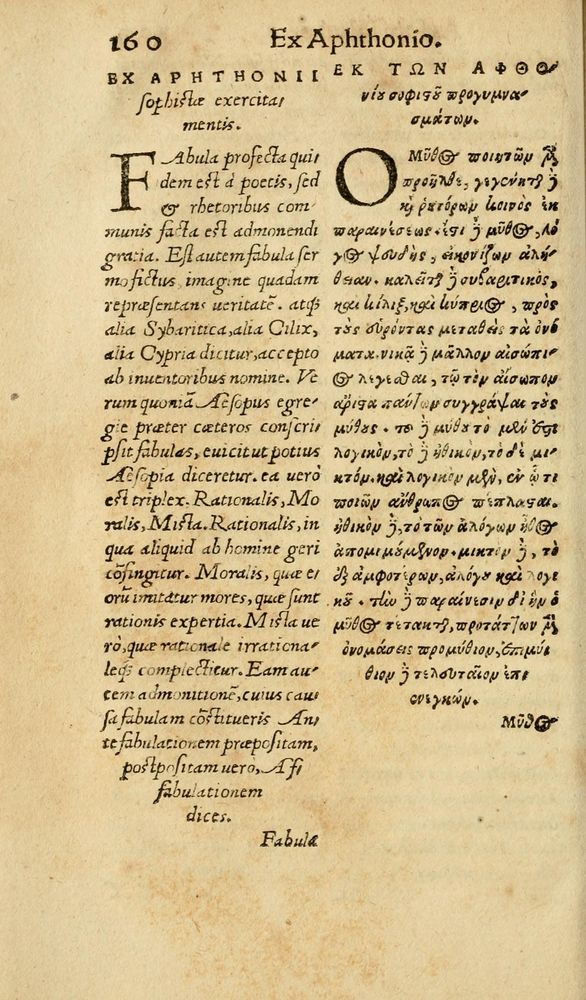 160 Ex Aphthonio.
EX APHTHONII
sophistæ exercita/
mentis.
FAbula profecta qui/
dem est à poetis, sed
& rhetoribus com/
munis facta est admonendi
gratia. Est autem fabula ser
mo fictus, imagine quadam
repræsentans ueritatē. atq́;
alia Sybaritica, alia Cilix,
alia Cypria dicitur, accepto
ab inuentoribus nomine. Ve
rum quoniā Aesopus egre/
gie præter cæteros conscri/
psit fabulas, euicit ut potius
Aesopia diceretur. ea uerò
est triplex. Rationalis, Mo
ralis, Mista. Rationalis, in
qua aliquid ab homine geri
cōfingitur. Moralis, quæ e/
orū imitatur mores, quæ sunt
rationis expertia. Mista ue
rò, quæ rationale irrationa/
leq́; complectitur. Eam au/
tem admonitionē, cuius cau/
sa fabulam cōstitueris An/
te fabulationem præpositam,
postpositam uerò, Af/
fabulationem
dices.
Fabulæ
ΕΚ ΤΩΝ ΑΦΘΟ/
νίου σοφιστοῦ προγυμνα/
σμάτων.
Ὁ Μῦθος ποιητῶν μὲν
προῆλθε, γεγένηται δὲ
καὶ ῥητόρων κοινὸς ἐκ
παραινέσεως. ἔστι δὲ μῦθος, λό
γος ψευδὴς, εἰκονίζων ἀλή/
θειαν. καλεῖται δὲ συβαριτικὸς,
καὶ κίλιξ, καὶ κύπριος, πρὸς
τοὺς εὑρόντας μεταθεὶς τὰ ὀνό
ματα. νικᾷ δὲ μᾶλλον αἰσώπει/
ος λέγεσθαι, τῷ τὸν αἴσωπον
ἄριστα πάντων συγγράψαι τοὺς
μύθους. τοῦ δὲ μύθου τὸ μέν ἐστι
λογικὸν, τὸ δὲ ἠθικὸν, τὸ δὲ μι/
κτόν. καὶ λογικὸν μὲν, ἐν ᾧ τι
ποιῶν ἄνθρωπος πέπλασται.
ἠθικὸν δὲ, τὸ τῶν ἀλόγων ἦθος
ἀπομιμούμενον. μικτὸν δὲ, τὸ
ἐξ ἀμφοτέρων, ἀλόγου καὶ λογι
κοῦ. τὴν δὲ παραίνεσιν δι' ἣν ὁ
μῦθος τέτακται, προτάττων μὲν
ὀνομάσεις προμύθιον, ἐπιμύ/
θιον δὲ τελευταῖον ἐπε/
νεγκών.
Μῦθος